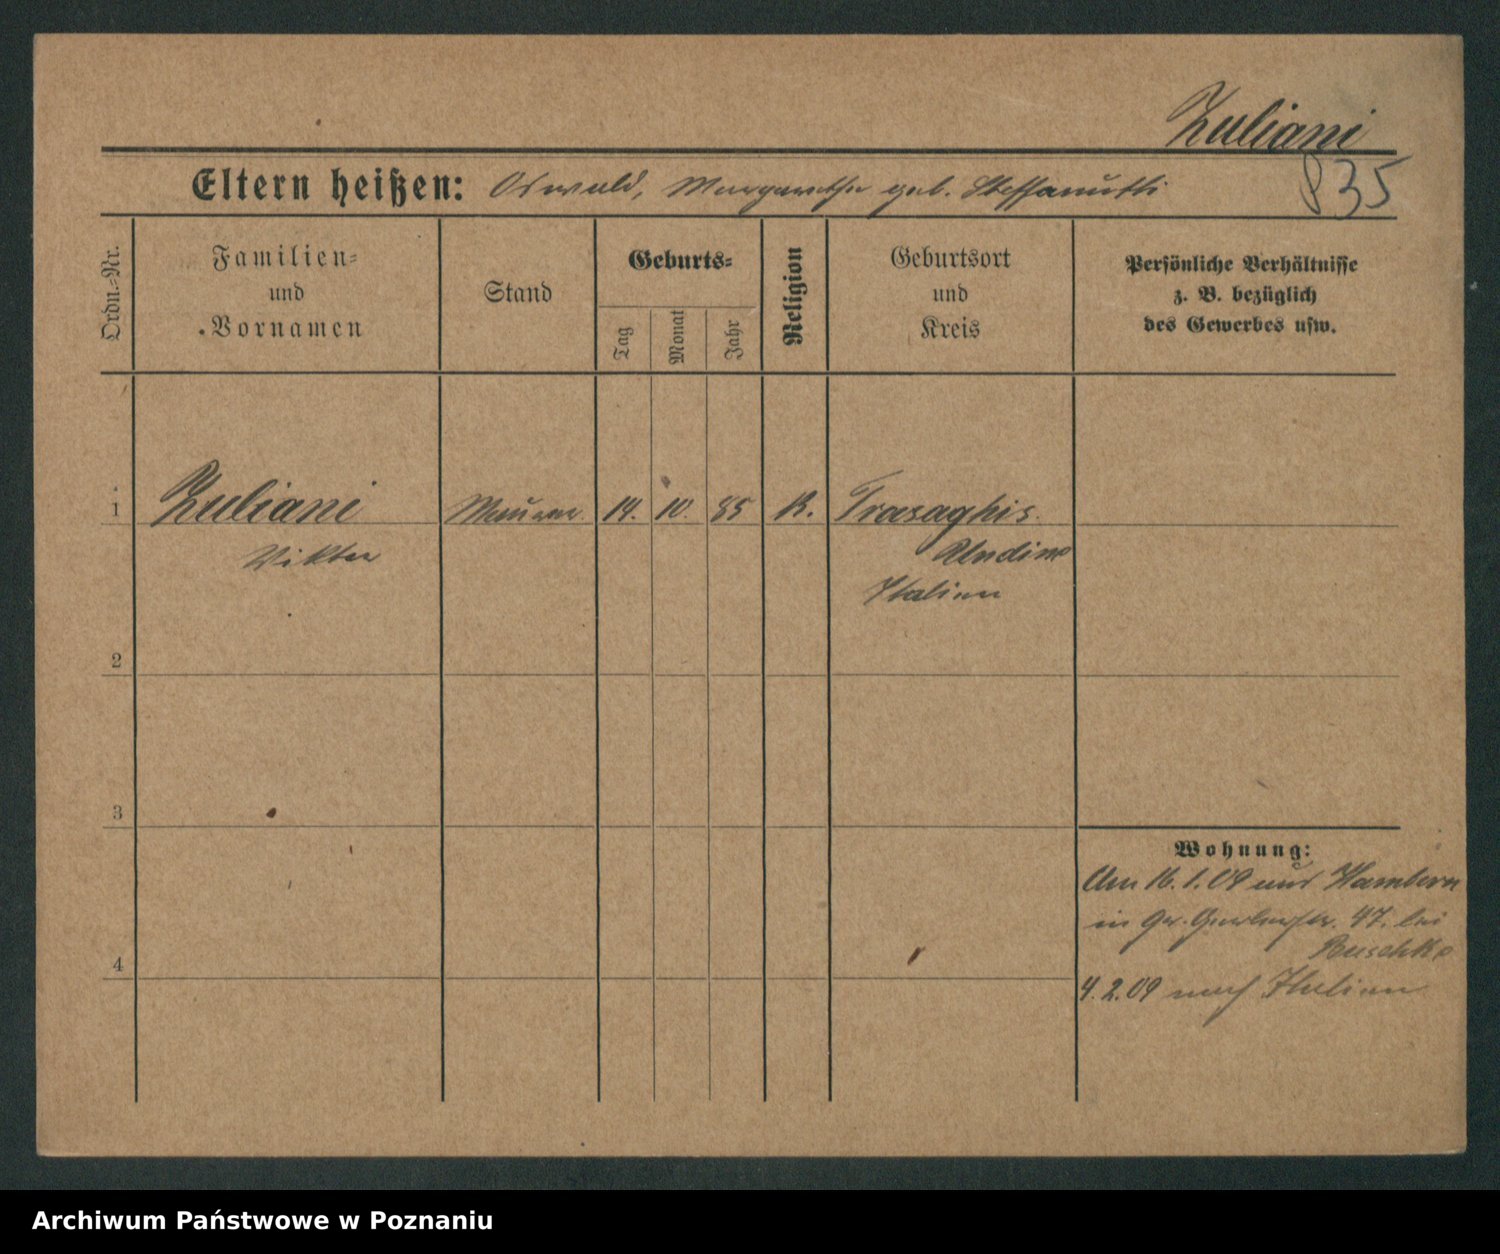 Zuliani
835
Eltern heißen: Oswald, Margarethe geb. Steffanutti
Ordn.-Nr.
Familien-
und
Vornamen
Stand
Geburts-
Tag
Monat
Jahr
Religion
Geburtsort
und
Kreis
Persönliche Verhältnisse
z. B. bezüglich
des Gewerbes usw.
1 Zuliani Maurer. 14. 10. 85 K. Trasaghis.
Viktor Undine
Italien
2
3
Wohnung:
Am 16.1.09 aus Hamborn
in Gr. Gerberstr. 47. bei
Buschke
4
4.2.09 nach Italien
Archiwum Państwowe w Poznaniu